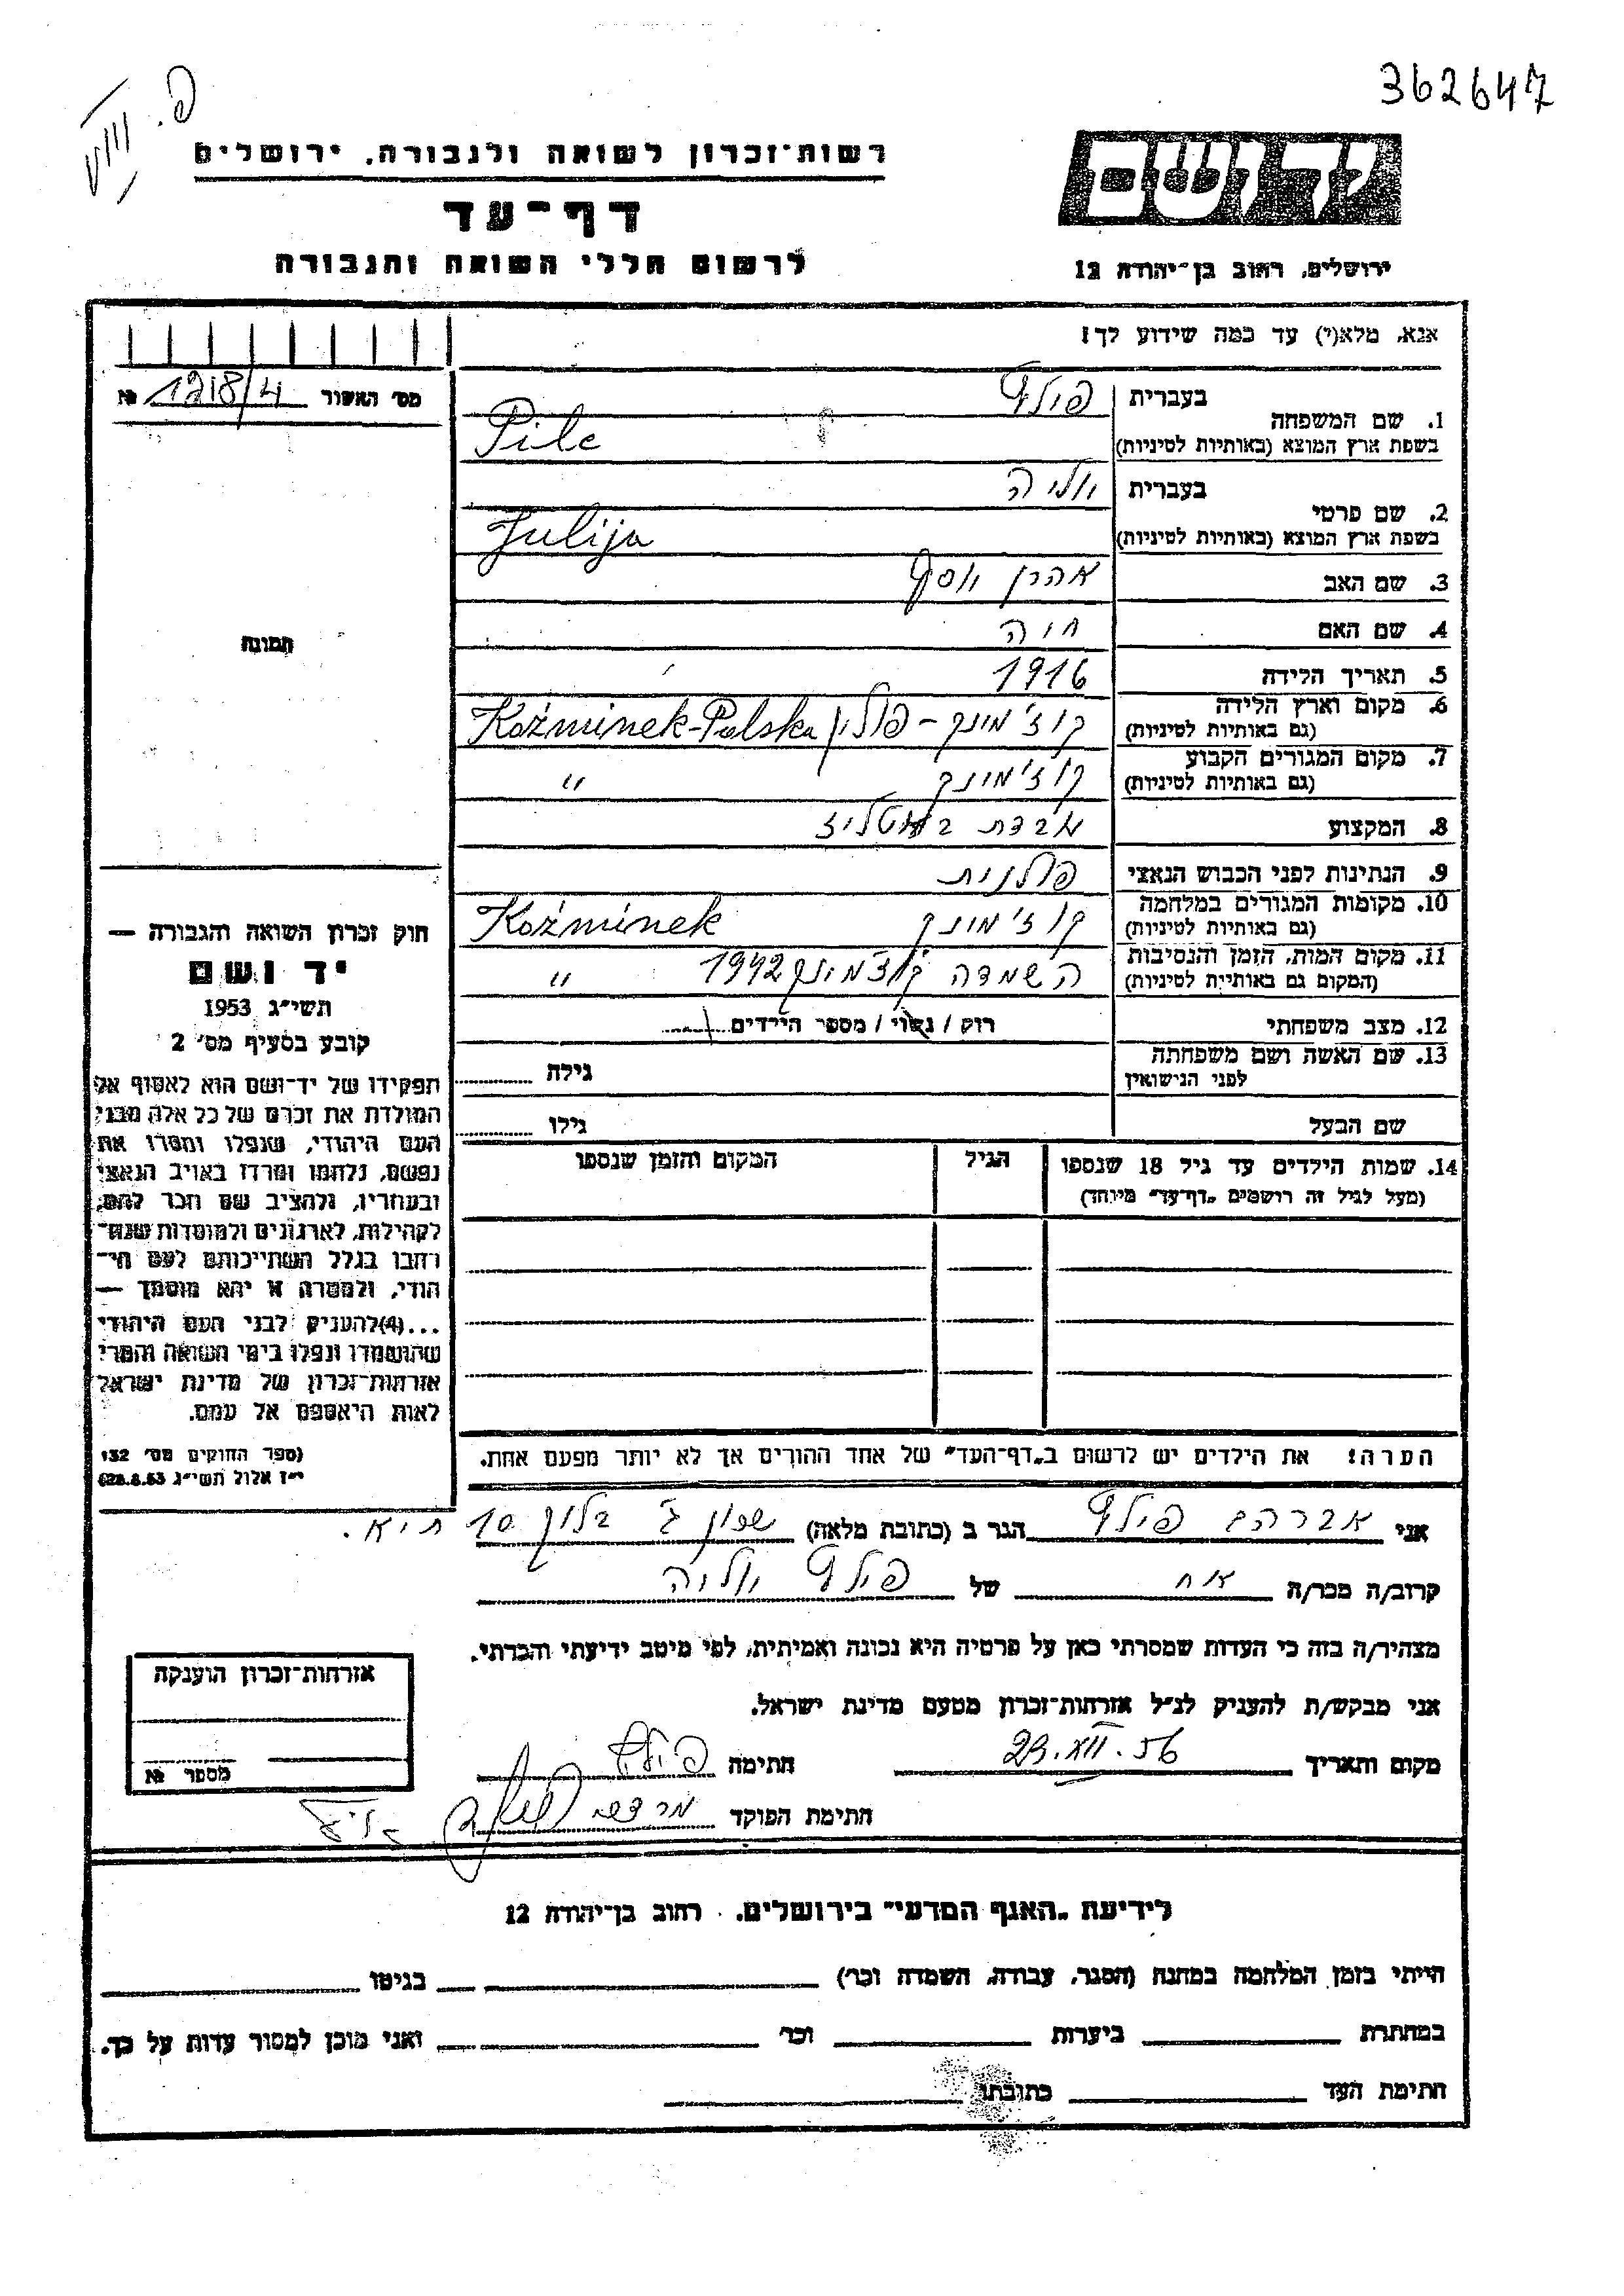 362647
פ. VIII
יד ושם
רשות־זכרון לשואה ולגבורה, ירושלים
דף־עד
לרשום חללי השואה והגבורה
ירושלים, רחוב בן־יהודה 12
אנא, מלא(י) עד כמה שידוע לך!
מס' האשור 1218/4 №
תמונה
1. שם המשפחה
בעברית פולץ
בשפת ארץ המוצא (באותיות לטיניות) Pilc
2. שם פרטי
בעברית יוליה
בשפת ארץ המוצא (באותיות לטיניות) Julija
3. שם האב אהרן יוסף
4. שם האם חוה
5. תאריך הלידה 1916
6. מקום וארץ הלידה קוז'מינק - פולין Koźminek-Polska
(גם באותיות לטיניות)
7. מקום המגורים הקבוע קוז'מינק "
(גם באותיות לטיניות)
8. המקצוע
9. הנתינות לפני הכבוש הנאצי פולנית
10. מקומות המגורים במלחמה קוז'מינק Koźminek
(גם באותיות לטיניות)
11. מקום המות, הזמן והנסיבות השמדה קוז'מינק 1942 "
(המקום גם באותיות לטיניות)
12. מצב משפחתי רוק / נשוי / מספר הילדים
13. שם האשה ושם משפחתה גילה
לפני הנישואין
שם הבעל גילו
14. שמות הילדים עד גיל 18 שנספו הגיל המקום והזמן שנספו
(מעל לגיל זה רושמים „דף־עד" מיוחד)
הערה! את הילדים יש לרשום ב„דף־העד" של אחד ההורים אך לא יותר מפעם אחת.
חוק זכרון השואה והגבורה —
יד ושם
תשי"ג 1953
קובע בסעיף מס' 2
תפקידו של יד־ושם הוא לאסוף אל
המולדת את זכרם של כל אלה מבני
העם היהודי, שנפלו ומסרו את
נפשם, נלחמו ומרדו באויב הנאצי
ובעוזריו, ולהציב שם וזכר להם,
לקהילות, לארגונים ולמוסדות שנח־
רחבו בגלל השתייכותם לעם הי־
הודי, ולמטרה זו יהא מוסמך —
...(4)להעניק לבני העם היהודי
שהושמדו ונפלו בימי השואה והמרי
אזרחות־זכרון של מדינת ישראל
לאות היאספם אל עמם.
(ספר החוקים מס' 132
י"ז אלול תשי"ג 28.8.53)
אני אברהם פולץ הגר ב (כתובת מלאה) שכון ג' בלוק 10 ת"א.
קרוב/ה מכר/ה אח של פולץ יוליה
מצהיר/ה בזה כי העדות שמסרתי כאן על פרטיה היא נכונה ואמיתית, לפי מיטב ידיעתי והכרתי.
אני מבקש/ת להעניק לנ"ל אזרחות־זכרון מטעם מדינת ישראל.
מקום ותאריך 23.XII.56 חתימה פולץ
חתימת הפוקד מרדכי
אזרחות־זכרון הוענקה
מספר №
לידיעת „האגף המדעי" בירושלים. רחוב בן־יהודה 12
הייתי בזמן המלחמה במחנה (הסגר, עבודה, השמדה וכו') בגיטו
במחתרת ביערות וכו' ואני מוכן למסור עדות על כך.
חתימת העד כתובתו